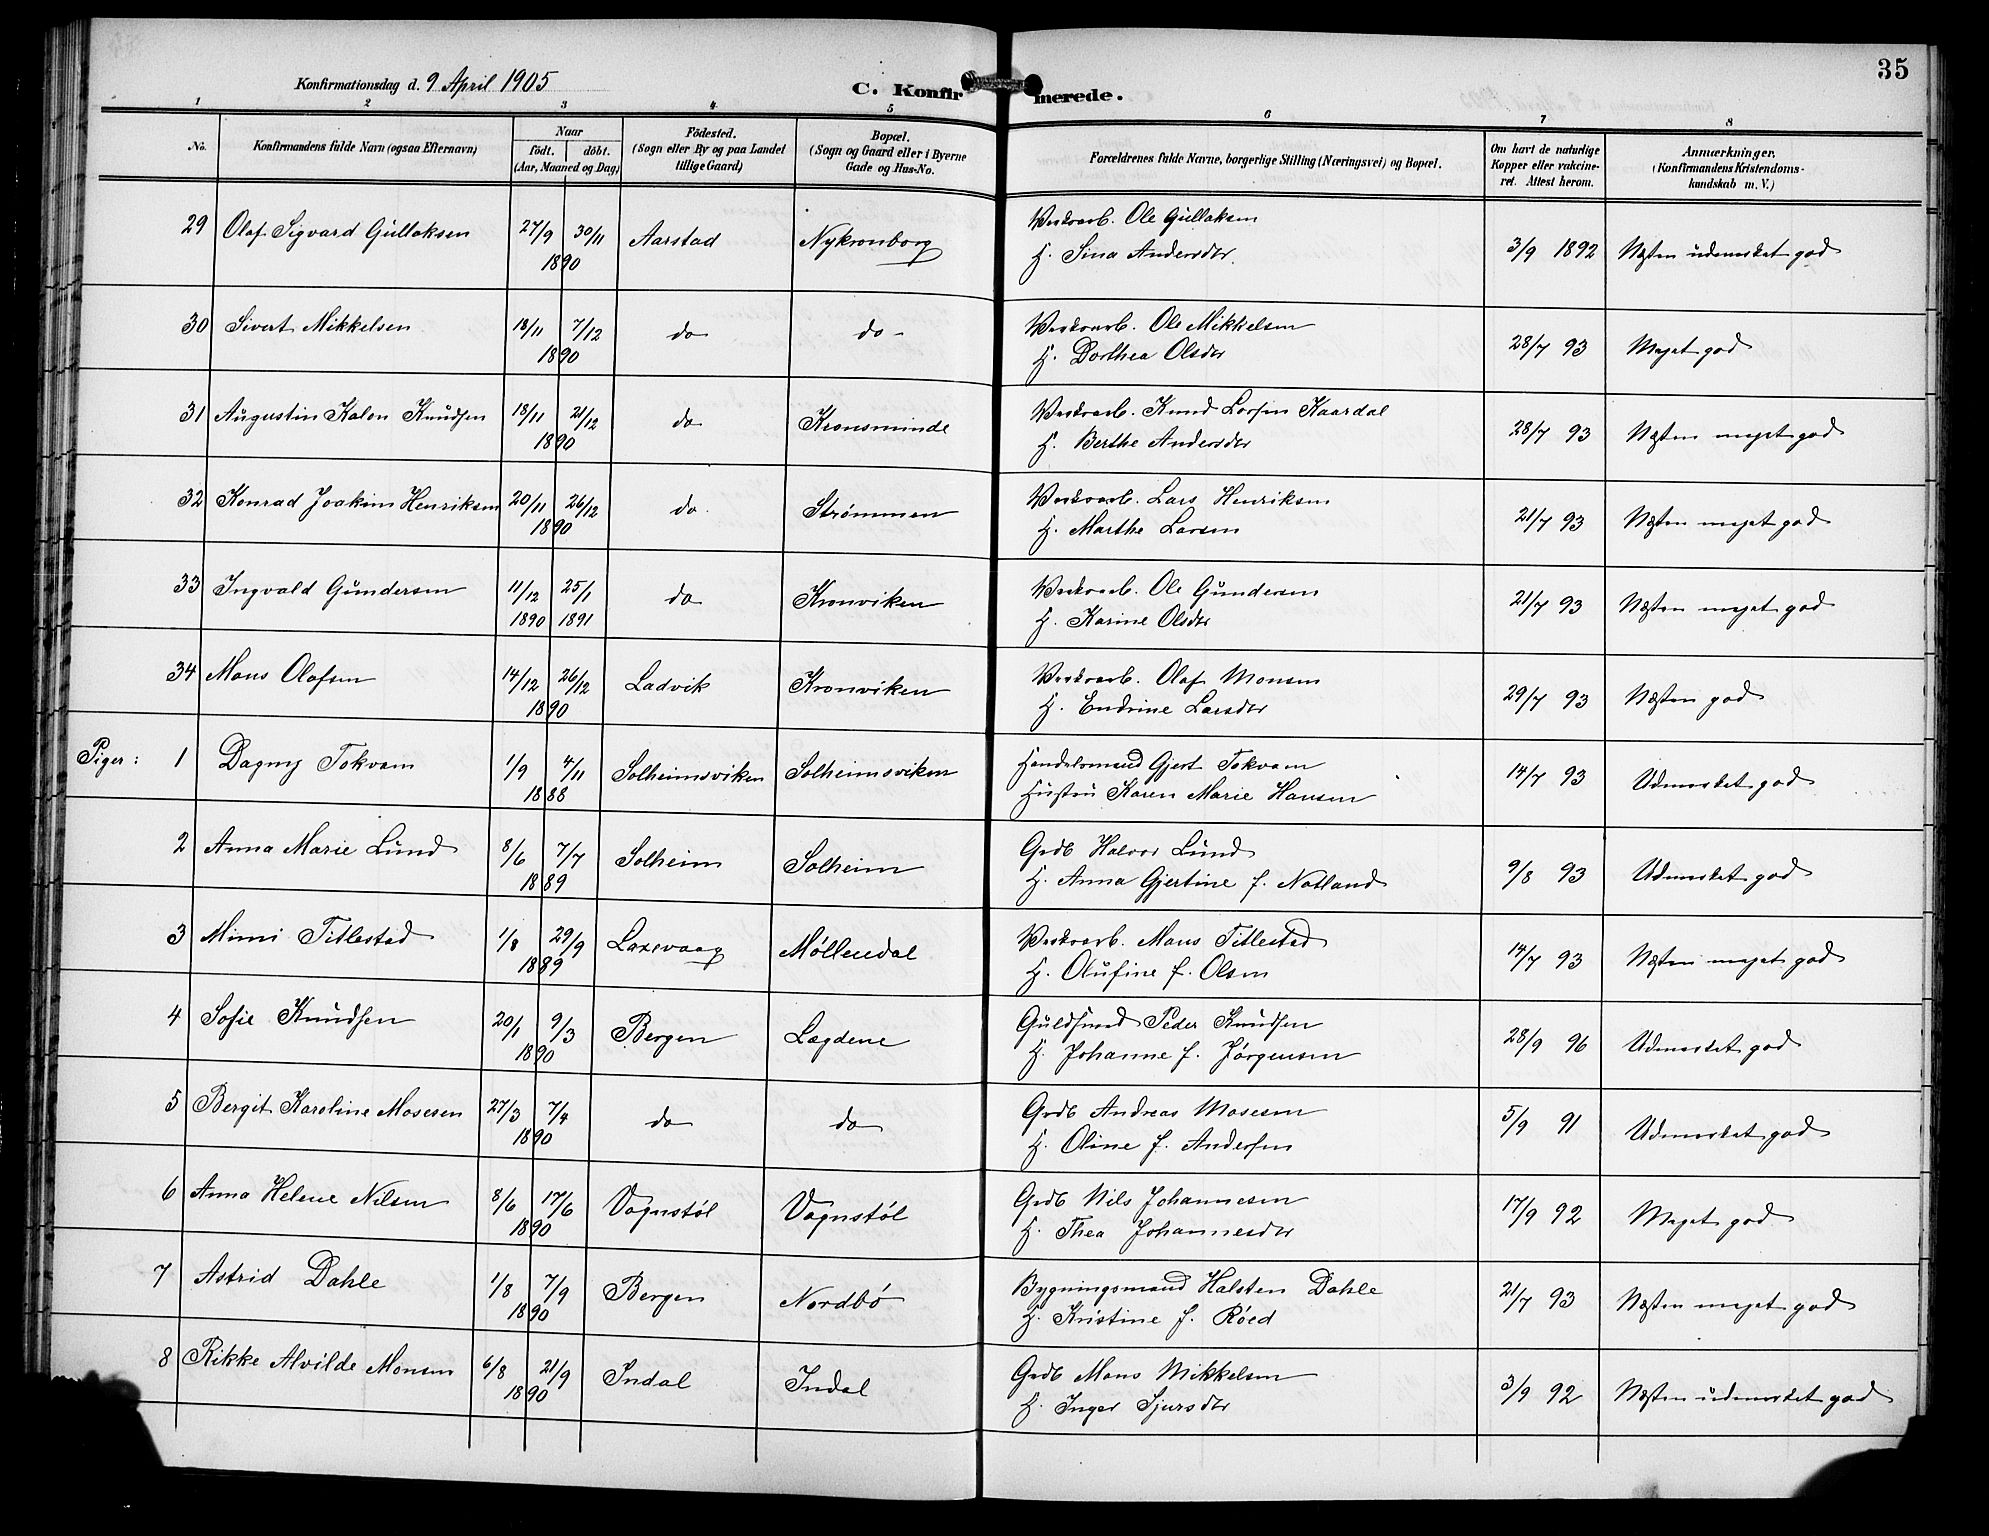 35
Konfirmationsdag d. 9 April 1905
C. Konfirmerede.
1 2 3 4 5 6 7 8
No. | Konfirmandens fulde Navn (ogsaa Efternavn) | Naar födt. döbt. (Aar, Maaned og Dag) | Födested. (Sogn eller By og paa Landet tillige Gaard) | Bopæl. (Sogn og Gaard eller i Byerne Gade og Hus-No. | Forældrenes fulde Navne, borgerlige Stilling (Næringsvei) og Bopæl. | Om havt de naturlige Kopper eller vakcineret. Attest herom. | Anmærkninger. (Konfirmandens Kristendomskundskab m. V.)
29 Olaf Sigvard Gullaksen 27/9 30/11 1890 Aarstad Nykronborg Værkarb. Ole Gullaksen
H. Sina Andersdtr. 3/9 1892 Næsten udmerket god
30 Sivert Mikkelsen 18/11 7/12 1890 do do - Værkarb. Ole Mikkelsen
H. Dorthea Olsdtr 28/7 93 Meget god
31 Augustin Kalon Knudsen 18/11 21/12 1890 do Kronsminde Værkarb. Knud Larsen Kaardal
H. Berthe Andersdtr 28/7 93 Næsten meget god
32 Konrad Joakim Henriksen 20/11 26/12 1890 do. Strømmen Værkarb. Lars Henriksen
H. Marthe Larsen 21/7 93 Næsten meget god
33 Ingvald Gundersen 11/12 1890 25/1 1891 do Kronviken Værkarb. Ole Gundersen
H. Karine Olsdtr 21/7 93 Næsten meget god
34 Mons Olafsen 14/12 26/12 1890 Ladvik Kronviken Værkarb. Olaf Monsen
H. Endrine Larsdtr 29/7 93 Næsten god
Piger: 1 Dagny Tokvam 1/9 4/11 1888 Solheimsviken Solheimsviken Handelsmand Gjert Tokvam
Hustru Karen Marie Hansen 14/7 93 Udmerket god
2 Anna Marie Lund 8/6 7/7 1889 Solheim Solheim Grdb Halvor Lund
H. Anna Gjertine f. Natland 9/8 93 Udmerket god
3 Mimi Titlestad 1/8 29/9 1889 Laxevaag Møllendal Værkarb. Mons Titlestad
H. Olufine f. Olsen 14/7 93 Næsten meget god
4 Sofie Knudsen 20/1 9/3 1890 Bergen Lægdene Guldsmed Peder Knudsen
H. Johanne f. Jørgensen 28/9 96 Udmerket god
5 Bergit Karoline Mosesen 27/3 7/4 1890 do do Grdb Andreas Mosesen
H. Oline f. Andersen 5/9 91 Udmerket god
6 Anna Helene Nilsen 8/6 17/6 1890 Vognstøl Vognstøl Grdb Nils Johannesen
H. Thea Johannesdtr 17/9 92 Meget god
7 Astrid Dahle 1/8 7/9 1890 Bergen Nordbø Bygningsmand Halsten Dahle
H. Kristine f. Røed 21/7 93 Næsten meget god
8 Rikke Alvilde Monsen 6/8 21/9 1890 Indal Indal Grdb Mons Mikkelsen
H. Inger Sjursdtr 3/9 92 Næsten udmerket god